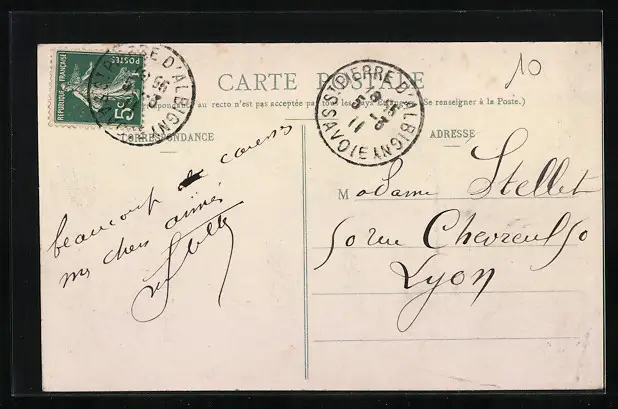 10
REPUBLIQUE FRANÇAISE
POSTES
5c
ST PIERRE D'ALBIGNY
ST PIERRE D'ALBIGNY
SAVOIE
11
CARTE POSTALE
au recto n'est pas acceptée par tous les pays (Se renseigner à la Poste.)
CORRESPONDANCE
ADRESSE
beaucoup de caresses
mes chers aimés
Madame Stellet
50 rue Chevreul 50
Lyon